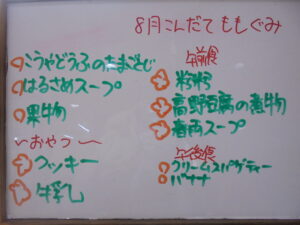 8月こんだて ももぐみ
こうやどうふのたまごとじ
はるさめスープ
果物
〜おやつ〜
クッキー
牛乳
午前食
粉粥
高野豆腐の煮物
春雨スープ
午後食
クリームスパゲティー
バナナ